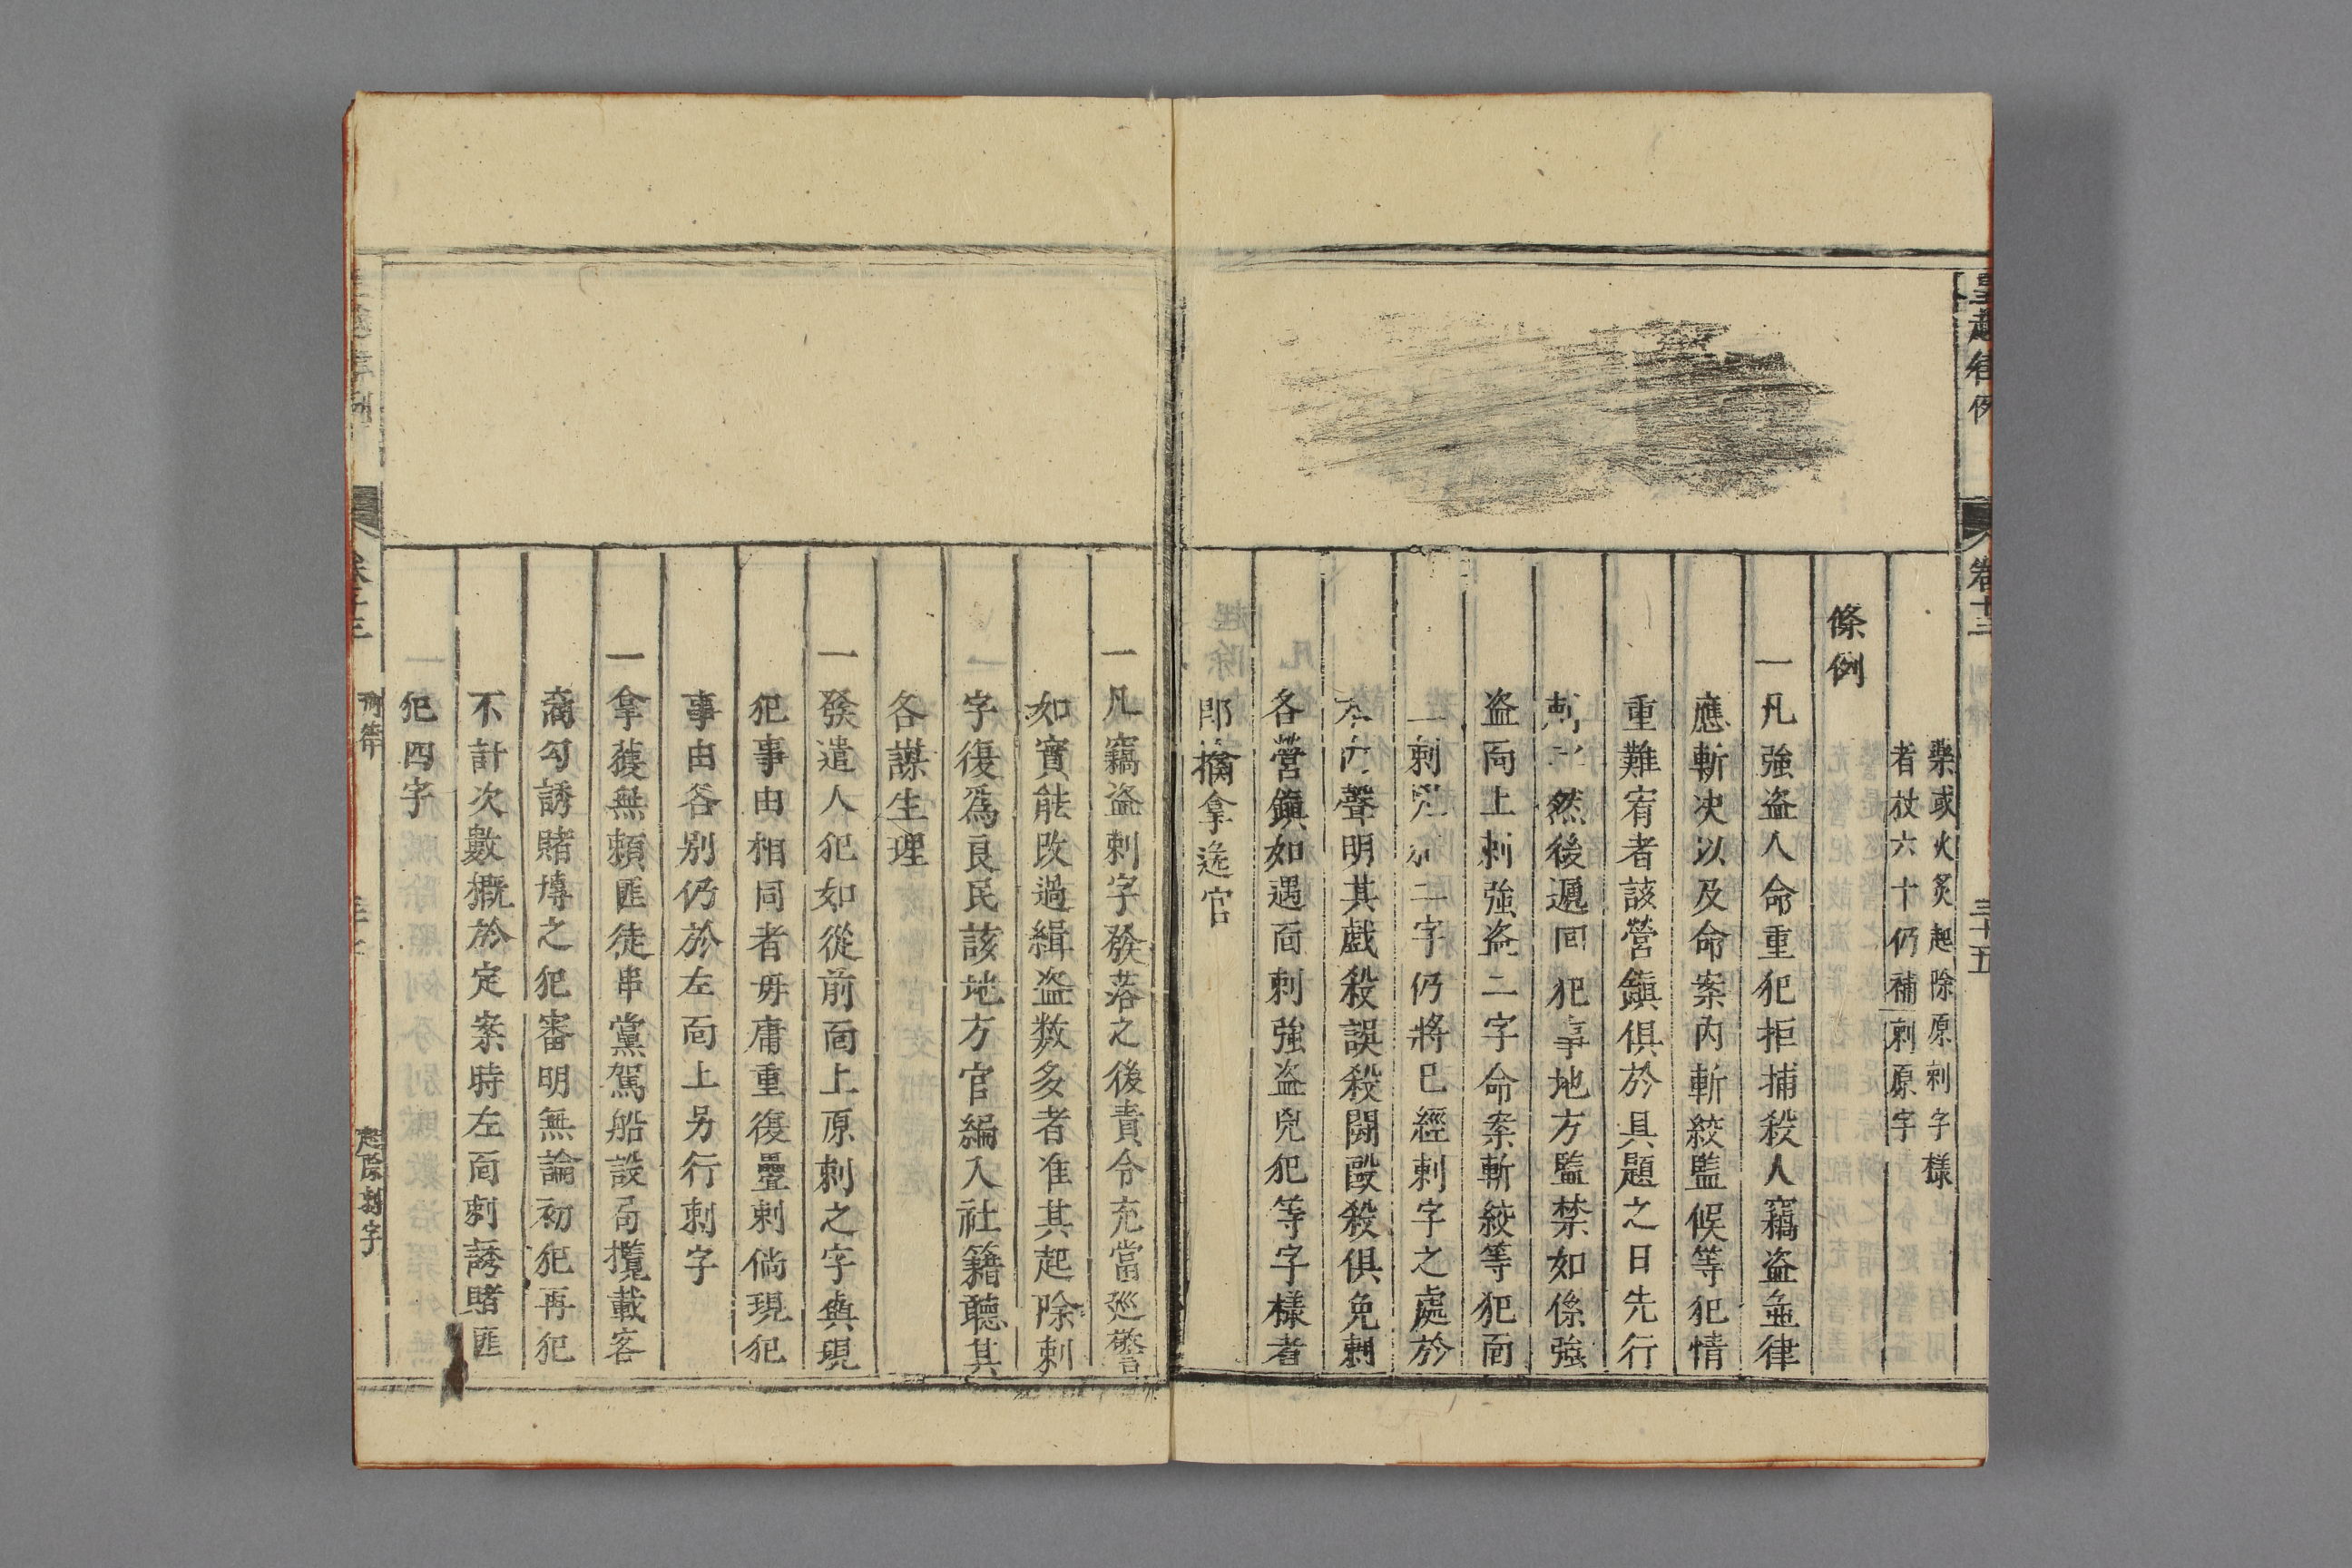 皇越律例
卷十三
三十五
藥或火炙起除原刺字樣
者杖六十仍補刺原字
條例
一凡強盗人命重犯拒捕殺人竊盗並律
應斬决以及命案内斬絞監候等犯情
重難宥者該營鎮俱於具題之日先行
刺字然後遞回犯事地方監禁如係強
盗面上刺強盗二字命案斬絞等犯面
上刺兇犯二字仍將已經刺字之處於
本内聲明其戯殺誤殺鬪毆殺俱免刺
各營鎮如遇面刺強盗兇犯等字樣者
即擒拿逓官
一凡竊盗刺字發落之後責令充當廵警
如實能改過緝盗数多者准其起除刺
字復爲良民該地方官編入社籍聽其
各謀生理
一發遣人犯如從前面上原刺之字與現
犯事由相同者毋庸重復疊刺倘現犯
事由各别仍於左面上另行刺字
一拿獲無頼匪徒串黨駕船設局攬載客
商勾誘賭博之犯審明無論初犯再犯
不計次數概於定案時左面刺誘賭匪
犯四字
刑律
起除刺字